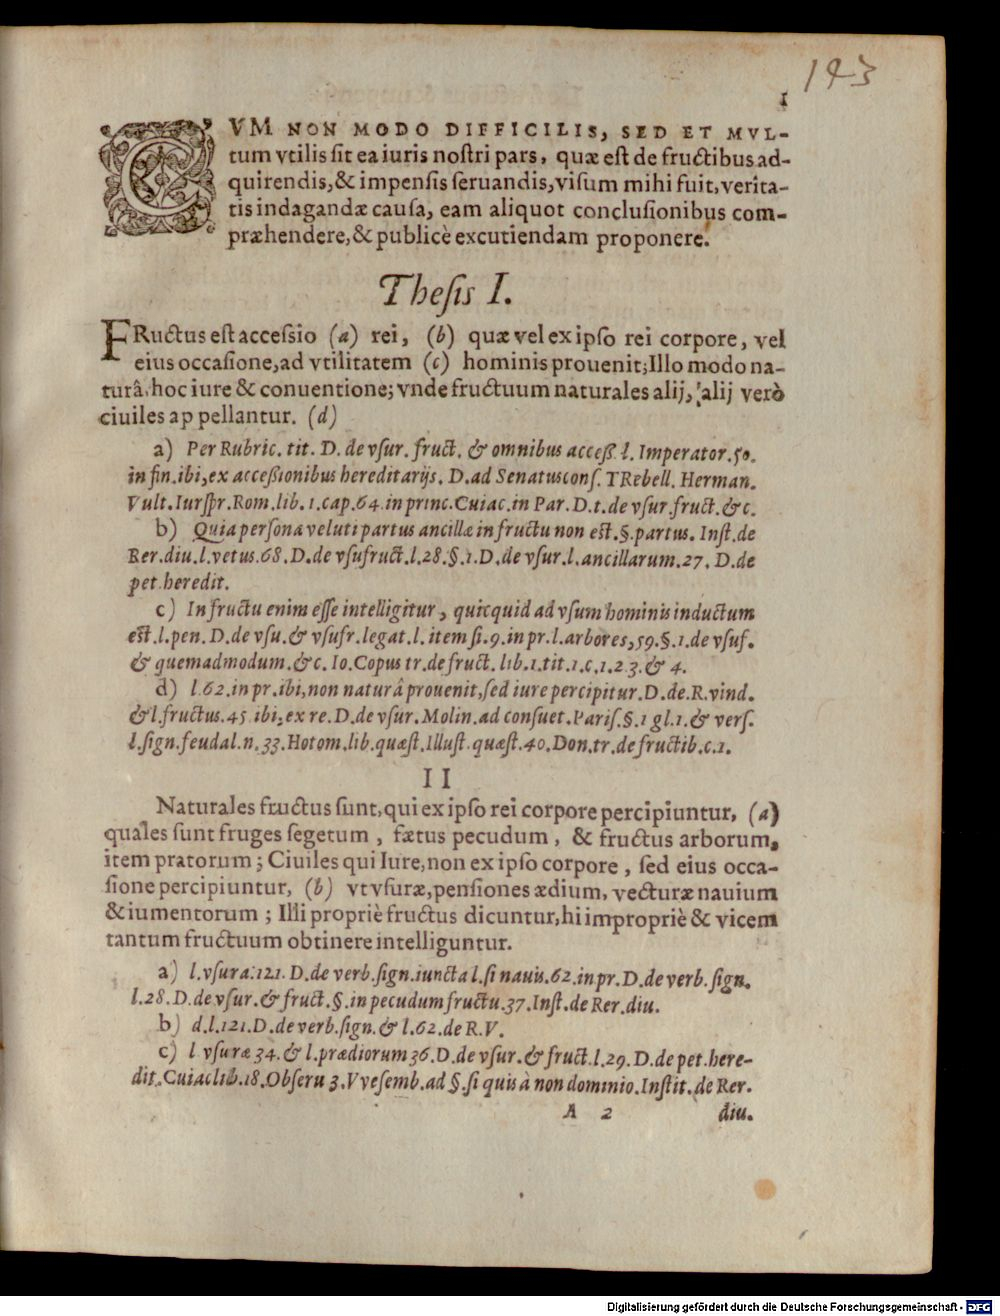 193
1
CVM NON MODO DIFFICILIS, SED ET MVL-
tum vtilis sit ea iuris nostri pars, quæ est de fructibus ad-
quirendis, & impensis seruandis, visum mihi fuit, verita-
tis indagandæ causa, eam aliquot conclusionibus com-
præhendere, & publicè excutiendam proponere.
Thesis I.
FRuctus est accessio (a) rei, (b) quæ vel ex ipso rei corpore, vel
eius occasione, ad vtilitatem (c) hominis prouenit; Illo modo na-
turâ, hoc iure & conuentione; vnde fructuum naturales alij, alij verò
ciuiles appellantur. (d)
a) Per Rubric. tit. D. de vsur. fruct. & omnibus access. l. Imperator. 50.
in fin. ibi, ex accessionibus hereditarijs. D. ad Senatuscons. TRebell. Herman.
Vult. Iurspr. Rom. lib. 1. cap. 64. in princ. Cuiac. in Par. D. t. de vsur. fruct. &c.
b) Quia persona veluti partus ancillæ in fructu non est. §. partus. Inst. de
Rer. diu. l. vetus. 68. D. de vsufruct. l. 28. §. 1. D. de vsur. l. ancillarum. 27. D. de
pet. heredit.
c) In fructu enim esse intelligitur, quicquid ad vsum hominis inductum
est. l. pen. D. de vsu. & vsufr. legat. l. item si. 9. in pr. l. arbores, 59. §. 1. de vsuf.
& quemadmodum. &c. Io. Copus tr. de fruct. lib. 1. tit. 1. c. 1. 2. 3. & 4.
d) l. 62. in pr. ibi, non naturâ prouenit, sed iure percipitur. D. de. R. vind.
& l. fructus. 45. ibi, ex re. D. de vsur. Molin. ad consuet. Paris. §. 1 gl. 1. & vers.
l. sign. feudal. n. 33. Hotom. lib. quæst. Illust. quæst. 40. Don. tr. de fructib. c. 1.
II
Naturales fructus sunt, qui ex ipso rei corpore percipiuntur, (a)
quales sunt fruges segetum, fætus pecudum, & fructus arborum,
item pratorum; Ciuiles qui Iure, non ex ipso corpore, sed eius occa-
sione percipiuntur, (b) vt vsuræ, pensiones ædium, vecturæ nauium
& iumentorum; Illi propriè fructus dicuntur, hi impropriè & vicem
tantum fructuum obtinere intelliguntur.
a) l. vsura. 121. D. de verb. sign. iuncta l. si nauis. 62. in pr. D. de verb. sign.
l. 28. D. de vsur. & fruct. §. in pecudum fructu. 37. Inst. de Rer. diu.
b) d. l. 121. D. de verb. sign. & l. 62. de R. V.
c) l vsuræ 34. & l. prædiorum 36. D. de vsur. & fruct. l. 29. D. de pet. here-
dit. Cuiac lib. 18. Obseru 3. VVesemb. ad §. si quis à non dominio. Instit. de Rer.
A 2 diu.
Digitalisierung gefördert durch die Deutsche Forschungsgemeinschaft - DFG